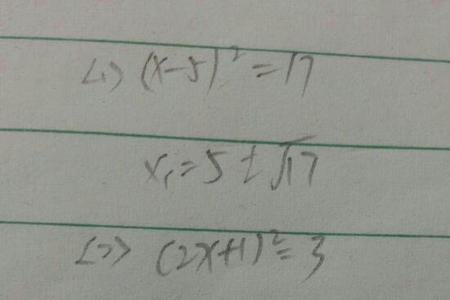 <1> (x-5)² = 17
x₁ = 5 ± √17
<2> (2x+1)² = 3